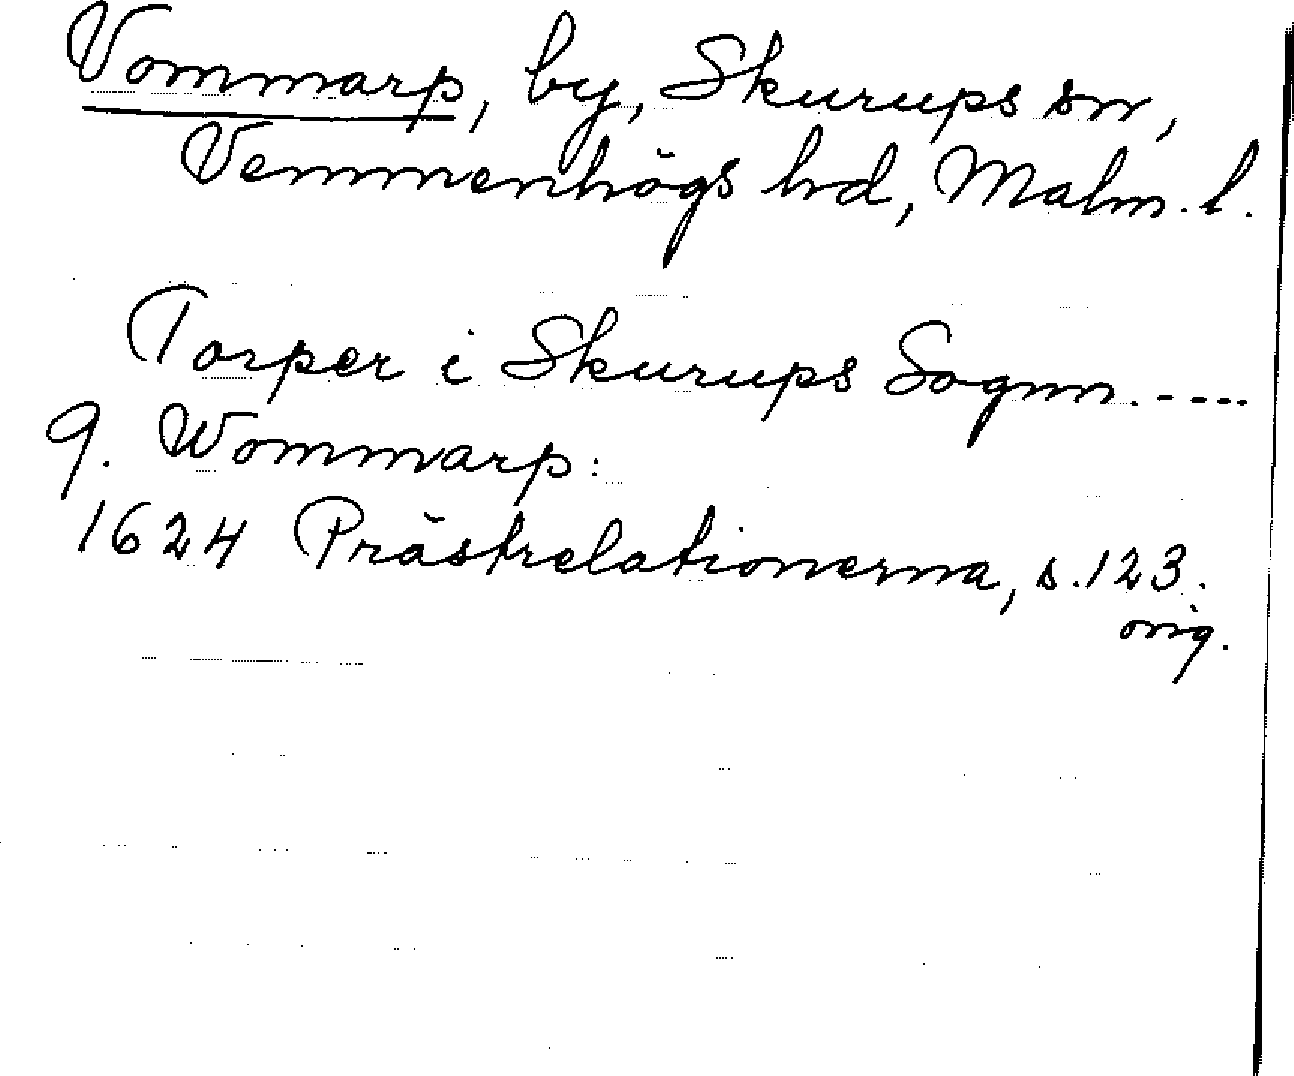 Vommarp, by, Skurups sn,
Vemmenhögs hd, Malm. l.
Torper i Skurups Sognn.----
9. Wommarp:
1624 Prästrelationerna, s. 123.
orig.